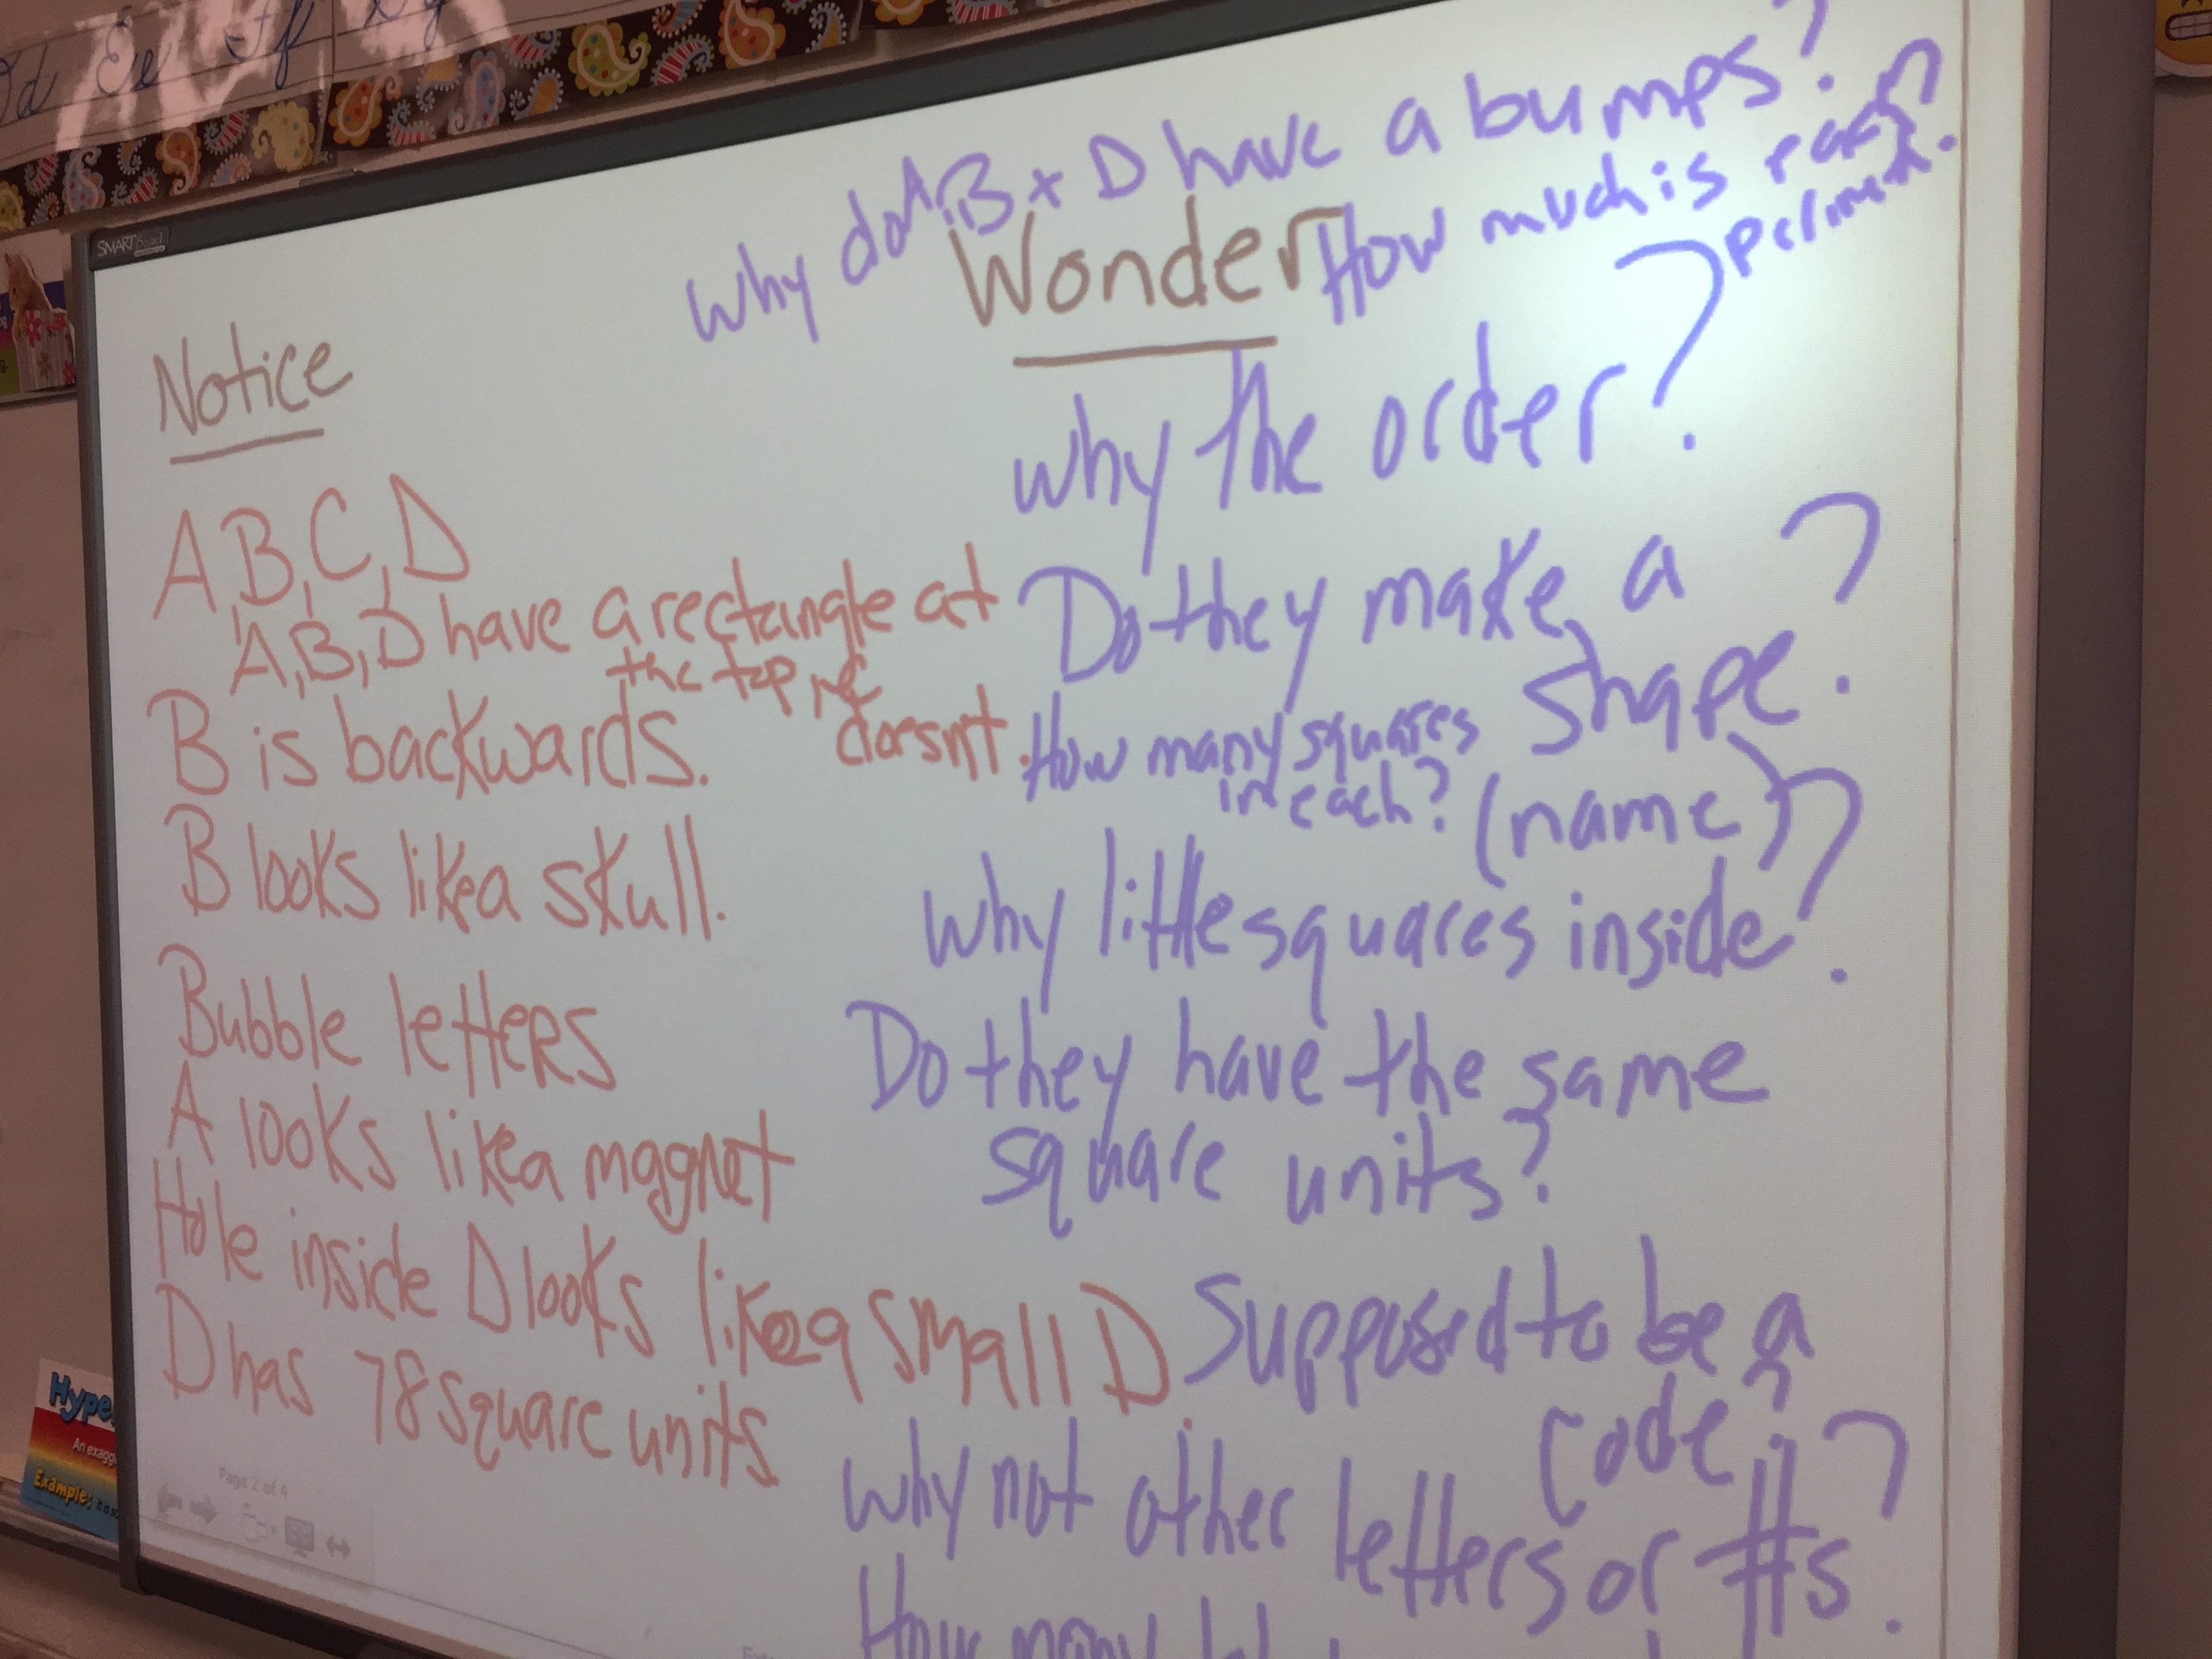 Dd Ee Ff
SMART Board
Why do A, B + D have a bumps?
How much is each
perimeter?
Notice
Wonder
A, B, C, D
A, B, D have a rectangle at
the top
doesnt.
B is backwards.
B looks like a skull.
Bubble letters
A looks like a magnet
Hole inside D looks like a small D.
D has 78 square units
Why the order?
Do they make a
shape?
(name)
How many squares
in each?
Why little squares inside?
Do they have the same
square units?
Supposed to be a
code?
Why not other letters or #s?
How many
Page 2 of 4
Hype
An exagg
Example: